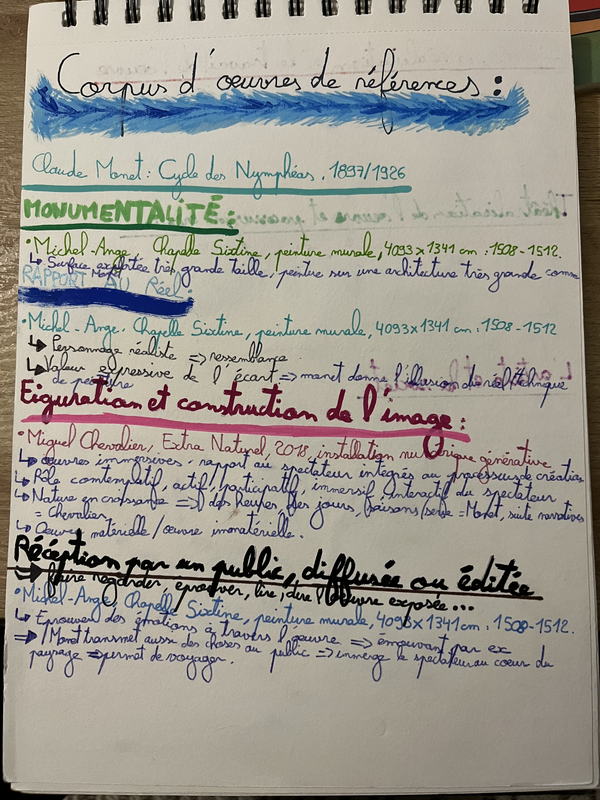 Corpus d'œuvres de références :
Claude Monet : Cycle des Nymphéas. 1897/1926
MONUMENTALITÉ :
• Michel-Ange, Chapelle Sixtine, peinture murale, 4093x1341 cm : 1508-1512.
↳ Surface exploitée très grande taille, peinture sur une architecture très grande comme
Monet
RAPPORT AU Réel :
• Michel-Ange. Chapelle Sixtine, peinture murale, 4093x1341 cm : 1508-1512
↳ Personnage réaliste => ressemblance.
↳ Valeur expressive de l'écart => monet donne l'illusion du réel technique
de peinture
Figuration et construction de l'image :
• Miguel Chevalier, Extra Naturel, 2018, installation numérique générative
↳ œuvres immersives, rapport au spectateur intégrés au processus de création
↳ Rôle comtemplatif, actif/participatif, immersif, interactif du spectateur
↳ Nature en croissance => des heures, des jours, saisons/ = Monet, suite narratives
= Chevalier
↳ Oeuvre matérielle/œuvre immatérielle.
Réception par un public, diffusée ou éditée
↳ Faire regarder, éprouver, lire, dire l'œuvre exposée...
• Michel-Ange, Chapelle Sixtine, peinture murale, 4093x1341 cm : 1508-1512.
↳ Éprouver des émotions à travers l'œuvre => émouvant par ex
=> Monet transmet aussi des choses au public => immerge le spectateur au coeur du
paysage => permet de voyager.